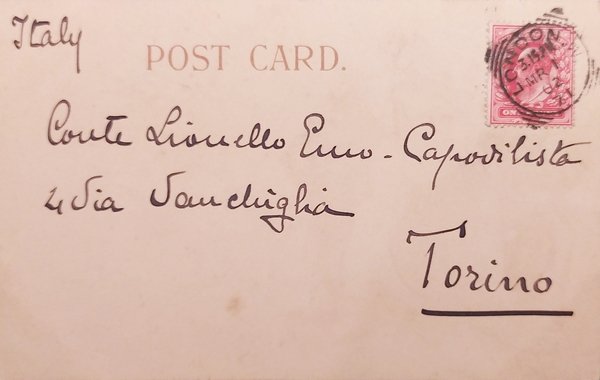 Italy
POST CARD.
LONDON. W
3.15 PM
MR 1
02
21
ON
Conte Lionello Emo-Capodilista
4 Via Vanchiglia
Torino